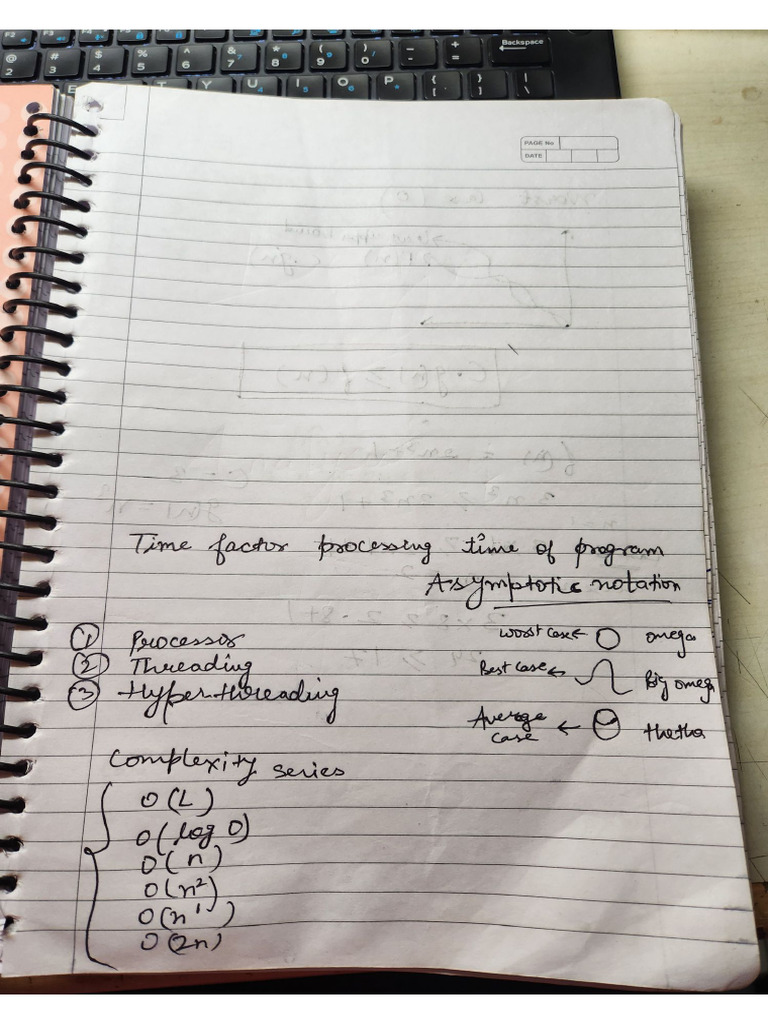 Backspace
PAGE No
DATE
Time factor processing time of program
Asymptotic notation
① Processor
② Threading
③ Hyper-threading
worst case ← O omega
Best case ← Big omega
Average case ← θ thetha
Complexity series
O(L)
O(log O)
O(n)
O(n²)
O(n¹)
O(2n)